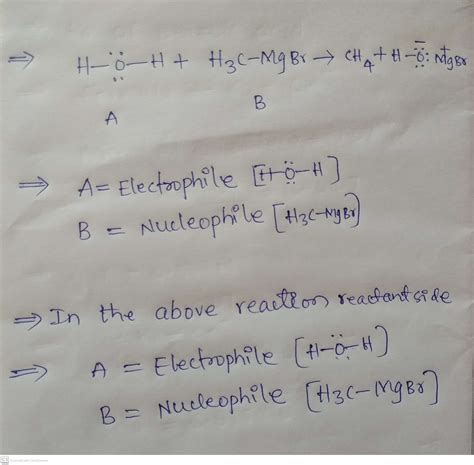 ⇒ H–Ö–H + H3C–MgBr → CH4 + H–Ö:⁻ ⁺MgBr
A B
⇒ A = Electrophile [H–Ö–H]
B = Nucleophile [H3C–MgBr]
⇒ In the above reaction reactant side
⇒ A = Electrophile [H–Ö–H]
B = Nucleophile [H3C–MgBr]